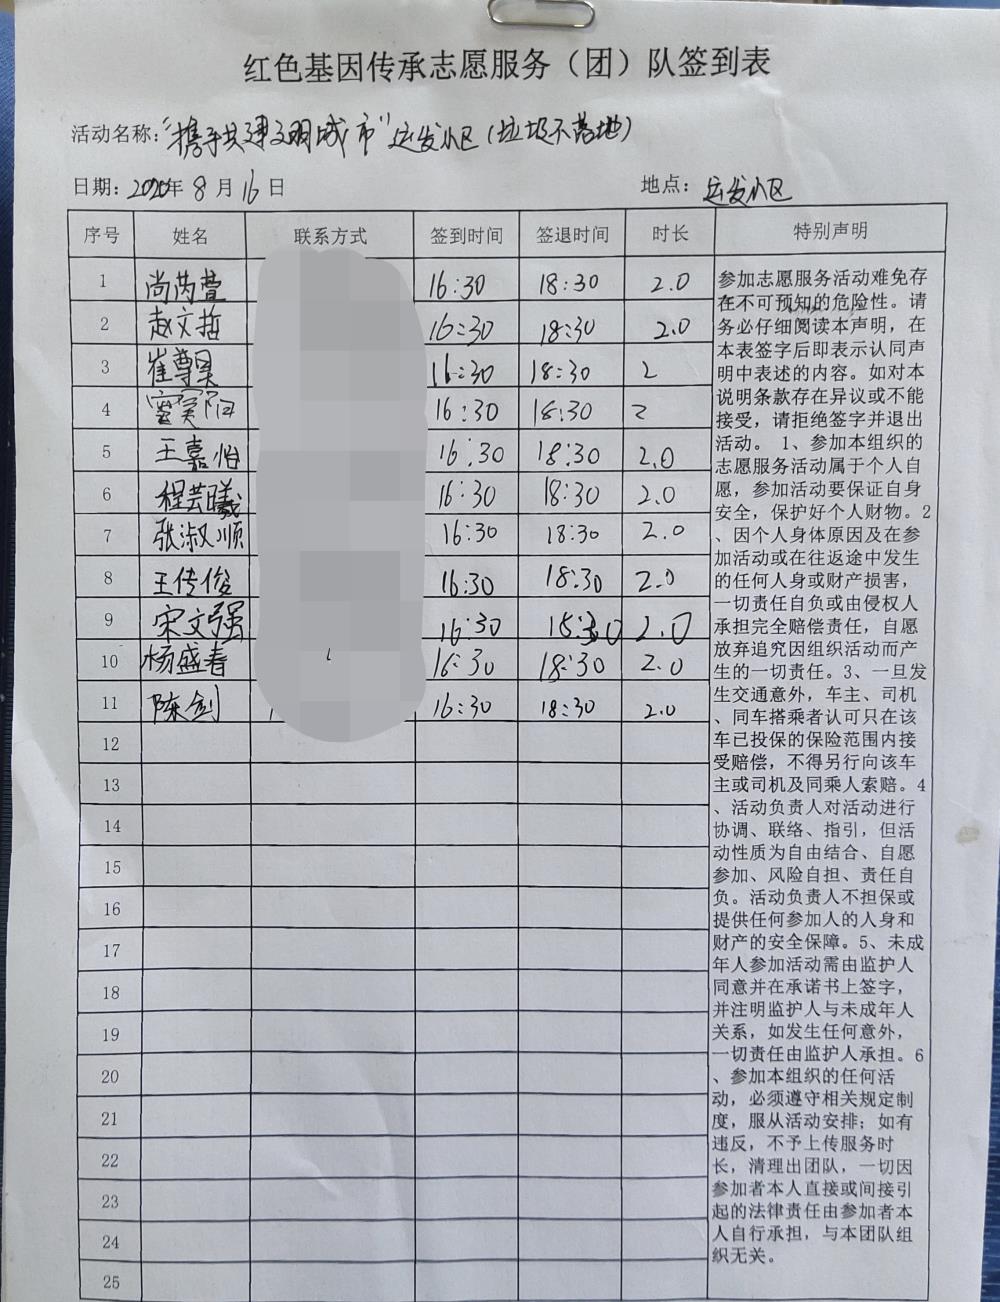 红色基因传承志愿服务（团）队签到表
活动名称：“携手共建文明城市”运发小区（垃圾不落地）
日期：2020年8月16日 地点：运发小区
序号 姓名 联系方式 签到时间 签退时间 时长 特别声明
1 尚芮萱 16:30 18:30 2.0
2 赵文哲 16:30 18:30 2.0
3 崔尊昊 16:30 18:30 2
4 16:30 18:30 2
5 王嘉怡 16:30 18:30 2.0
6 程芸曦 16:30 18:30 2.0
7 张淑顺 16:30 18:30 2.0
8 王传俊 16:30 18:30 2.0
9 宋文强 16:30 18:30 2.0
10 杨盛春 16:30 18:30 2.0
11 陈剑 16:30 18:30 2.0
12
13
14
15
16
17
18
19
20
21
22
23
24
25
参加志愿服务活动难免存
在不可预知的危险性。请
务必仔细阅读本声明，在
本表签字后即表示认同声
明中表述的内容。如对本
说明条款存在异议或不能
接受，请拒绝签字并退出
活动。 1、参加本组织的
志愿服务活动属于个人自
愿，参加活动要保证自身
安全，保护好个人财物。2
、因个人身体原因及在参
加活动或在往返途中发生
的任何人身或财产损害，
一切责任自负或由侵权人
承担完全赔偿责任，自愿
放弃追究因组织活动而产
生的一切责任。3、一旦发
生交通意外，车主、司机
、同车搭乘者认可只在该
车已投保的保险范围内接
受赔偿，不得另行向该车
主或司机及同乘人索赔。4
、活动负责人对活动进行
协调、联络、指引，但活
动性质为自由结合、自愿
参加、风险自担、责任自
负。活动负责人不担保或
提供任何参加人的人身和
财产的安全保障。5、未成
年人参加活动需由监护人
同意并在承诺书上签字，
并注明监护人与未成年人
关系，如发生任何意外，
一切责任由监护人承担。6
、参加本组织的任何活
动，必须遵守相关规定制
度，服从活动安排；如有
违反，不予上传服务时
长，清理出团队，一切因
参加者本人直接或间接引
起的法律责任由参加者本
人自行承担，与本团队组
织无关。